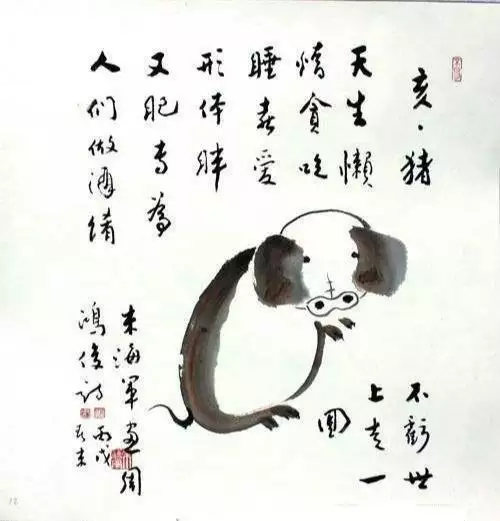 亥·猪
天生懒
惰贪吃
睡喜爱
形体胖
又肥专为
人们做酒餚
不虧世
上走一
圈
朱海军画周
鸿俊诗
丙戌